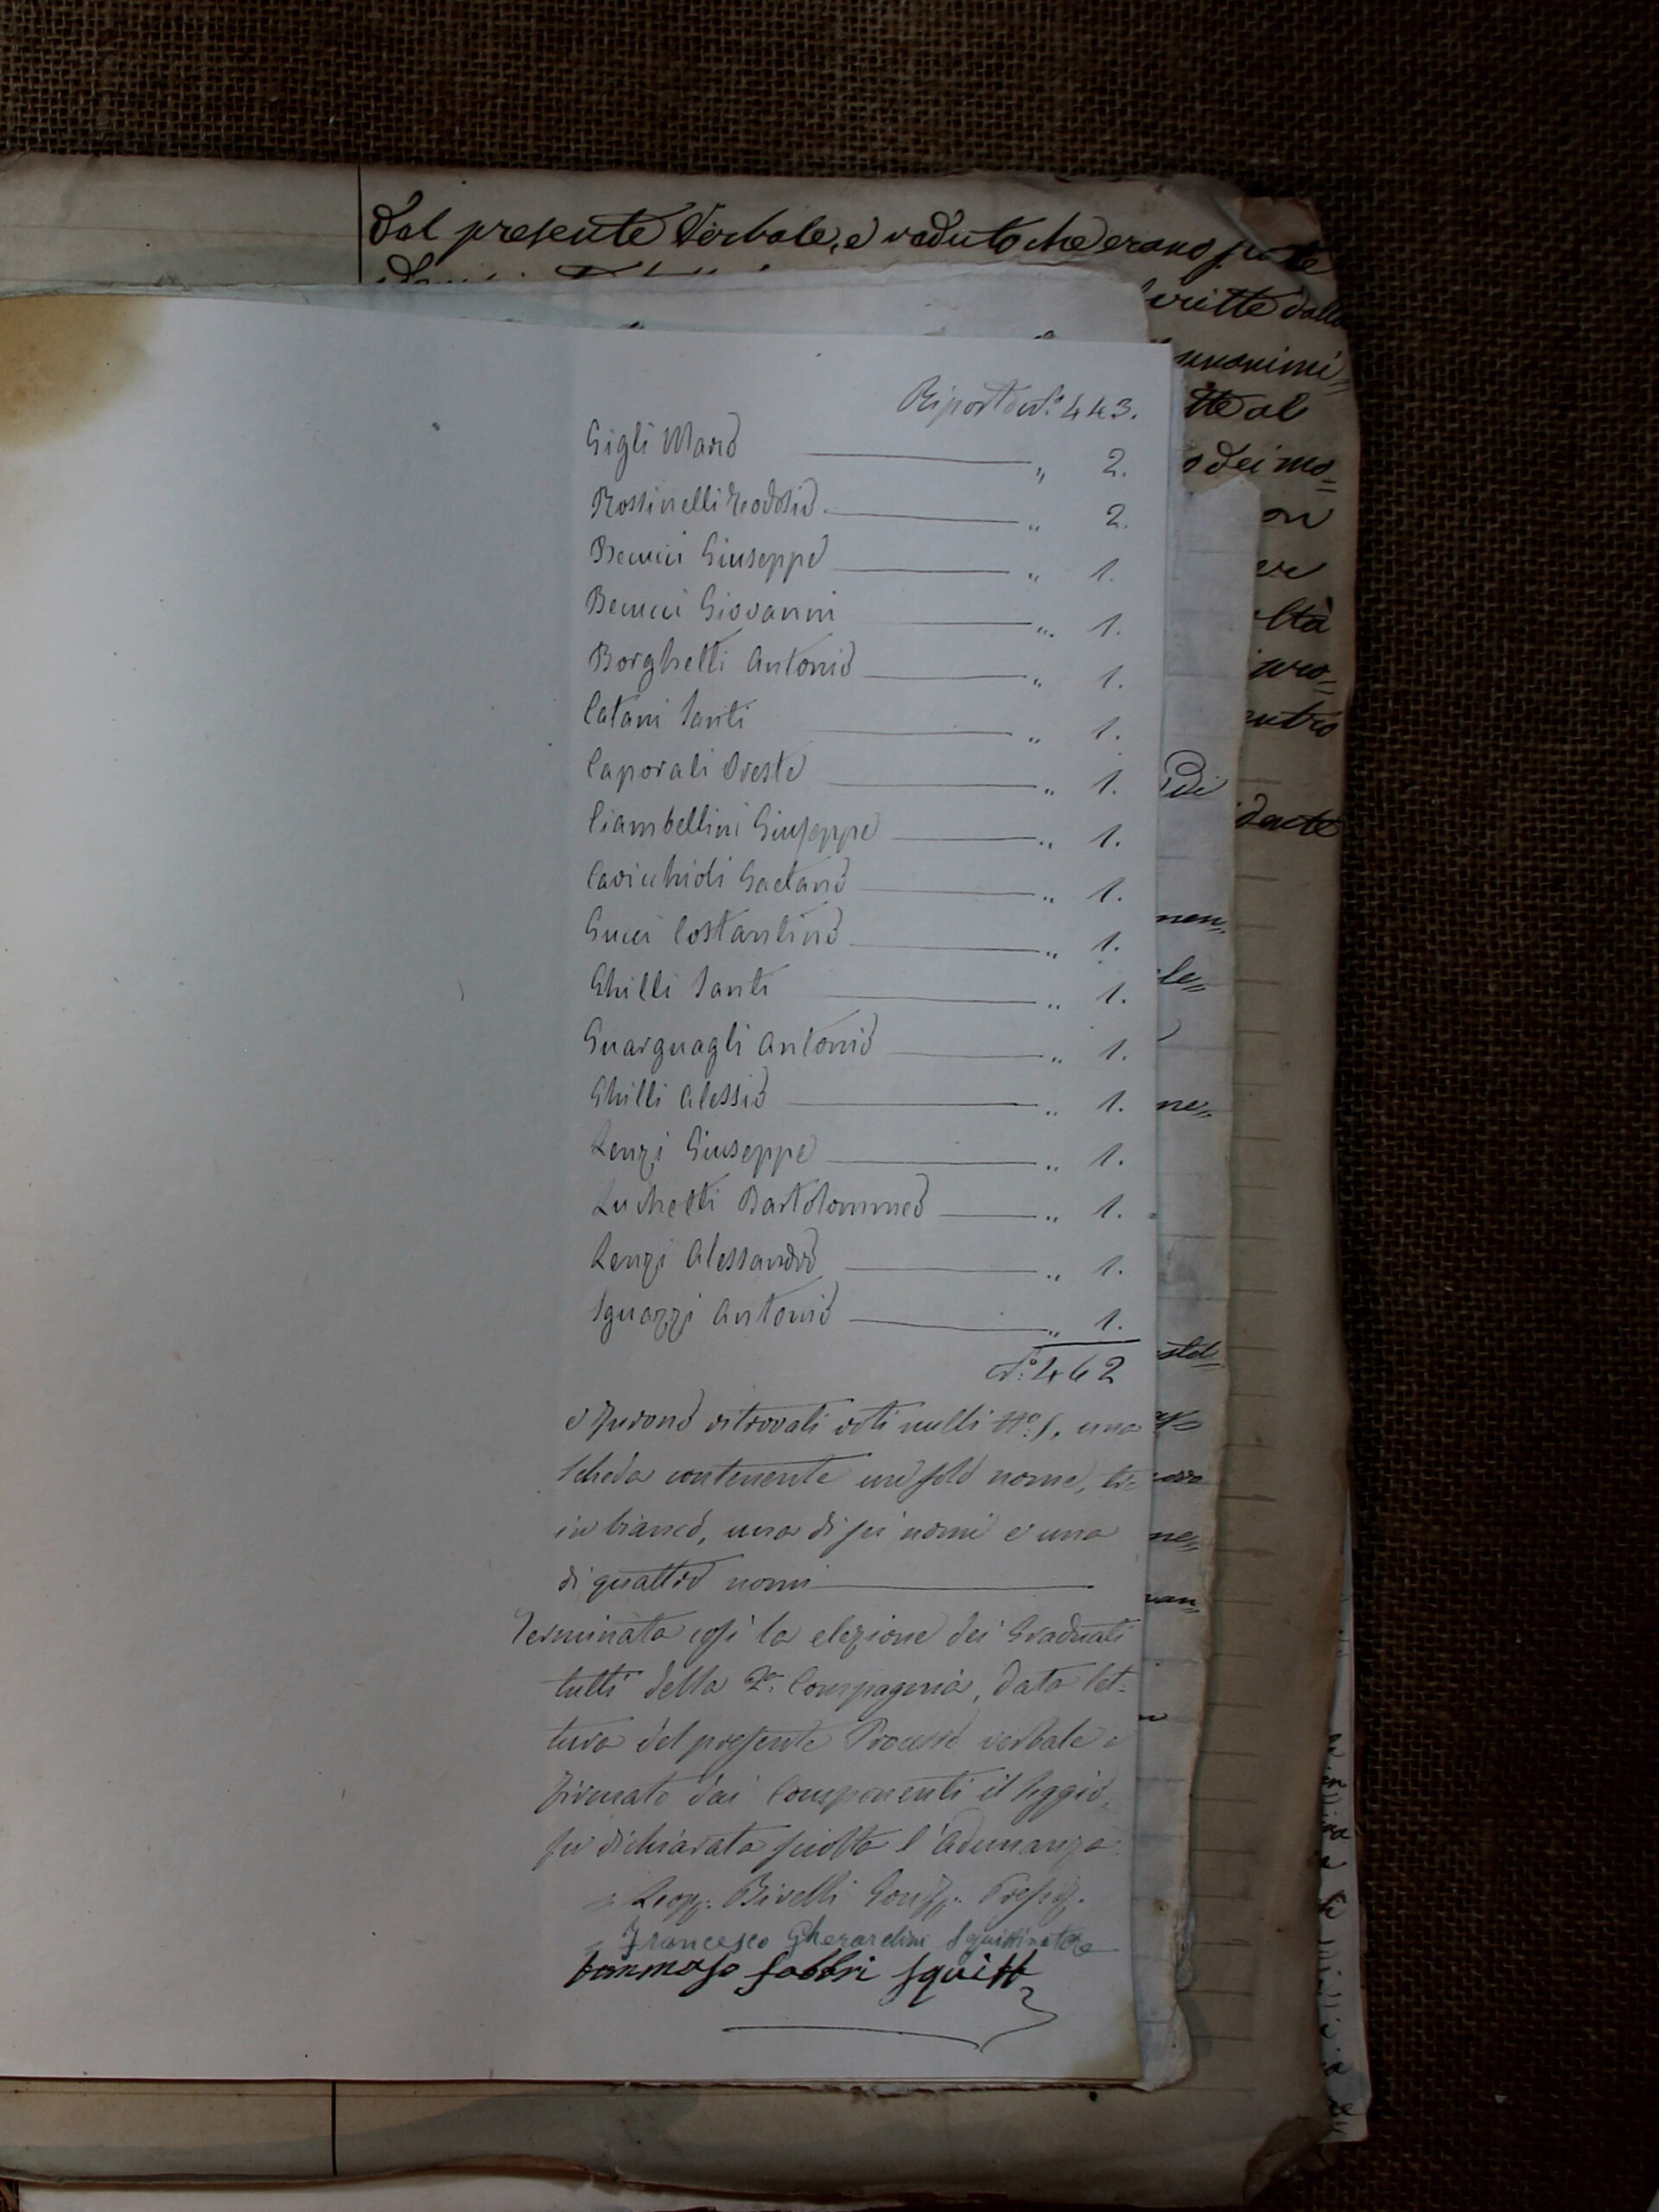 dal presente Verbale, e veduto che erano state
critte dalla
unanimi=
tte al
o dei mo=
on
ltà
entro
dente
Riporto N.° 443.
Gigli Mario ,, 2.
Rossinelli Teodosio ,, 2.
Becucci Giuseppe ,, 1.
Becucci Giovanni ,, 1.
Borghetti Antonio ,, 1.
Catani Santi ,, 1.
Caporali Oreste ,, 1.
Ciambellini Giuseppe ,, 1.
Cavicchioli Gaetano ,, 1.
Gucci Costantino ,, 1.
Ghilli Santi ,, 1.
Guarguagli Antonio ,, 1.
Ghilli Alessio ,, 1.
Lenzi Giuseppe ,, 1.
Luchetti Bartolommeo ,, 1.
Lenzi Alessandro ,, 1.
Sguazzi Antonio ,, 1.
N.° 462
e furono ritrovati voti nulli N.°, una
scheda contenente un solo nome, tre
in bianco, una di sei nomi e una
di quattro nomi
Terminata così la elezione dei Graduati
tutti della 2a. Compagnia, data let=
tura del presente Processo verbale e
firmato dai Componenti il seggio,
fu dichiarata sciolta l'Adunanza.
Birelli
Francesco Gherardini Squittinatore
Tommaso Fabbri Squitt